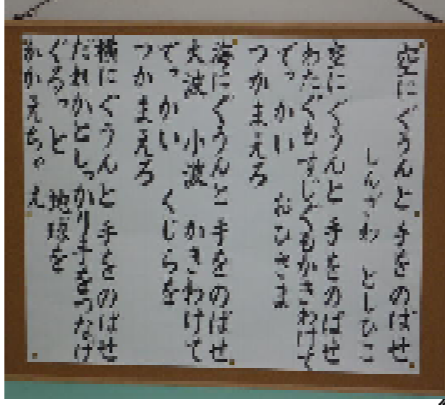 空に ぐうんと 手を のばせ
しんざわ としひこ
空に ぐうんと 手を のばせ
わたぐも すじぐも かきわけて
でっかい おひさま
つかまえろ
海に ぐうんと 手を のばせ
大波 小波 かきわけて
でっかい くじらを
つかまえろ
横に ぐうんと 手を のばせ
だれかと しっかり 手を つなげ
ぐるっと 地球を
かかえちゃえ